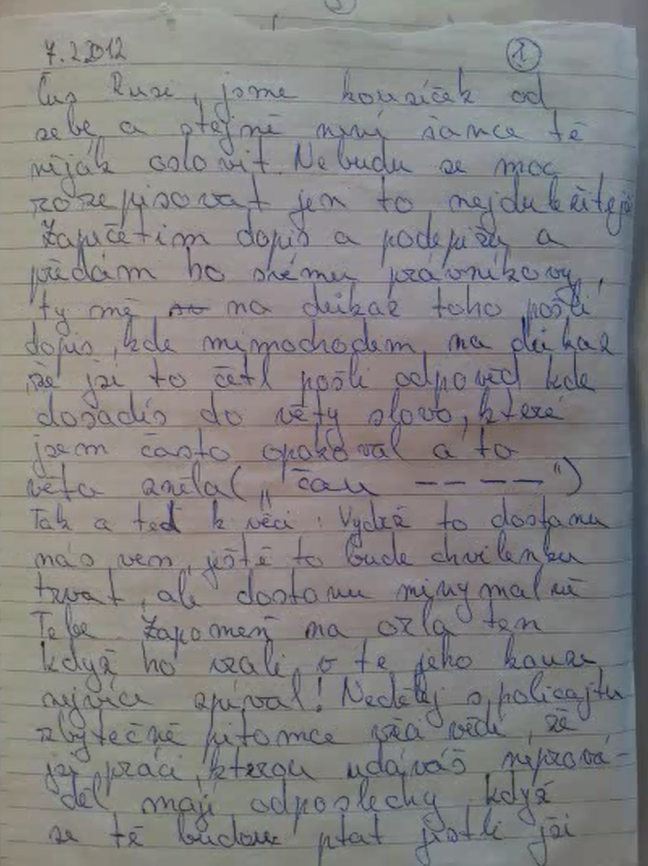 7.2.2012 1
Čus Rusi, jsme kousíček od
sebe a stejně není šance tě
něják oslovit. Nebudu se moc
rozepisovat jen to nejduležitejš
Zapečetim dopis a podepíšu a
předám ho svému právníkovy,
ty mě na dukaz toho pošli
dopis, kde mimochodem, na dukaz
že jsi to četl pošli odpověd kde
dosadíš do věty slovo, které
jsem často opakoval a to
věta zněla („čau – – – – –")
Tak a teď k věci: Vydrž to dostanu
nás ven, ještě to bude chvilenku
trvat, ale dostanu minymalně
Tebe. Zapomeň na ožla ten
když ho vzali v té jeho kauze
nejvíce zpíval! Nedělej s policajtu
zbytečně pitomce vžá vědí, že
jsi práci, kterou udáváš neprová-
děl mají odposlechy když
se tě budou ptat jestli jsi